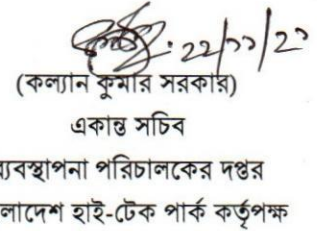 ২২/১১/২১
(কল্যান কুমার সরকার)
একান্ত সচিব
ব্যবস্থাপনা পরিচালকের দপ্তর
লাদেশ হাই-টেক পার্ক কর্তৃপক্ষ